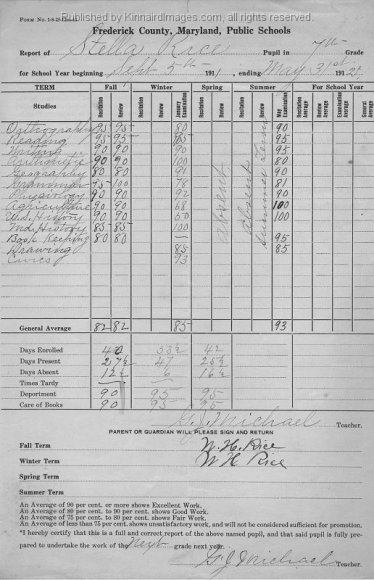 Published by KinnairdImages.com, all rights reserved.
Frederick County, Maryland, Public Schools
Report of Stella Rice Pupil in 7th Grade
for School Year beginning Sept 5th 1911, ending May 31st 1912.
TERM Fall Winter Spring Summer For School Year
Studies Recitation Review Recitation Review January Examination Recitation Review Recitation Review May Examination Recitation Average Review Average Examination Average General Average
Orthography 95 95 80 90
Reading 95 95 85 95
Writing 90 90 90 95
Arithmetic 90 90 100 80
Geography 80 80 91 90
Grammar 75 100 78 81
Physiology 90 90 92 90
Agriculture 90 90 68 100
U.S. History 90 90 60 100
Md. History 85 85 100
Book Keeping 80 80 — 95
Drawing 85 85
Civics 93
absent
absent
General Average 82 82 85 93
Days Enrolled 40 53½ 42
Days Present 27½ 47 25½
Days Absent 12½ 6 16½
Times Tardy
Deportment 90 95 95
Care of Books 90 95 95
G. J. Michael Teacher.
PARENT OR GUARDIAN WILL PLEASE SIGN AND RETURN
Fall Term W. H. Rice
Winter Term W H Rice
Spring Term
Summer Term
An Average of 90 per cent. or more shows Excellent Work.
An Average of 80 per cent. to 90 per cent. shows Good Work.
An Average of 75 per cent. to 80 per cent. shows Fair Work.
An Average of less than 75 per cent. shows unsatisfactory work, and will not be considered sufficient for promotion.
"I hereby certify that this is a full and correct report of the above named pupil, and that said pupil is fully pre-
pared to undertake the work of the Next grade next year.
G. J. Michael Teacher.